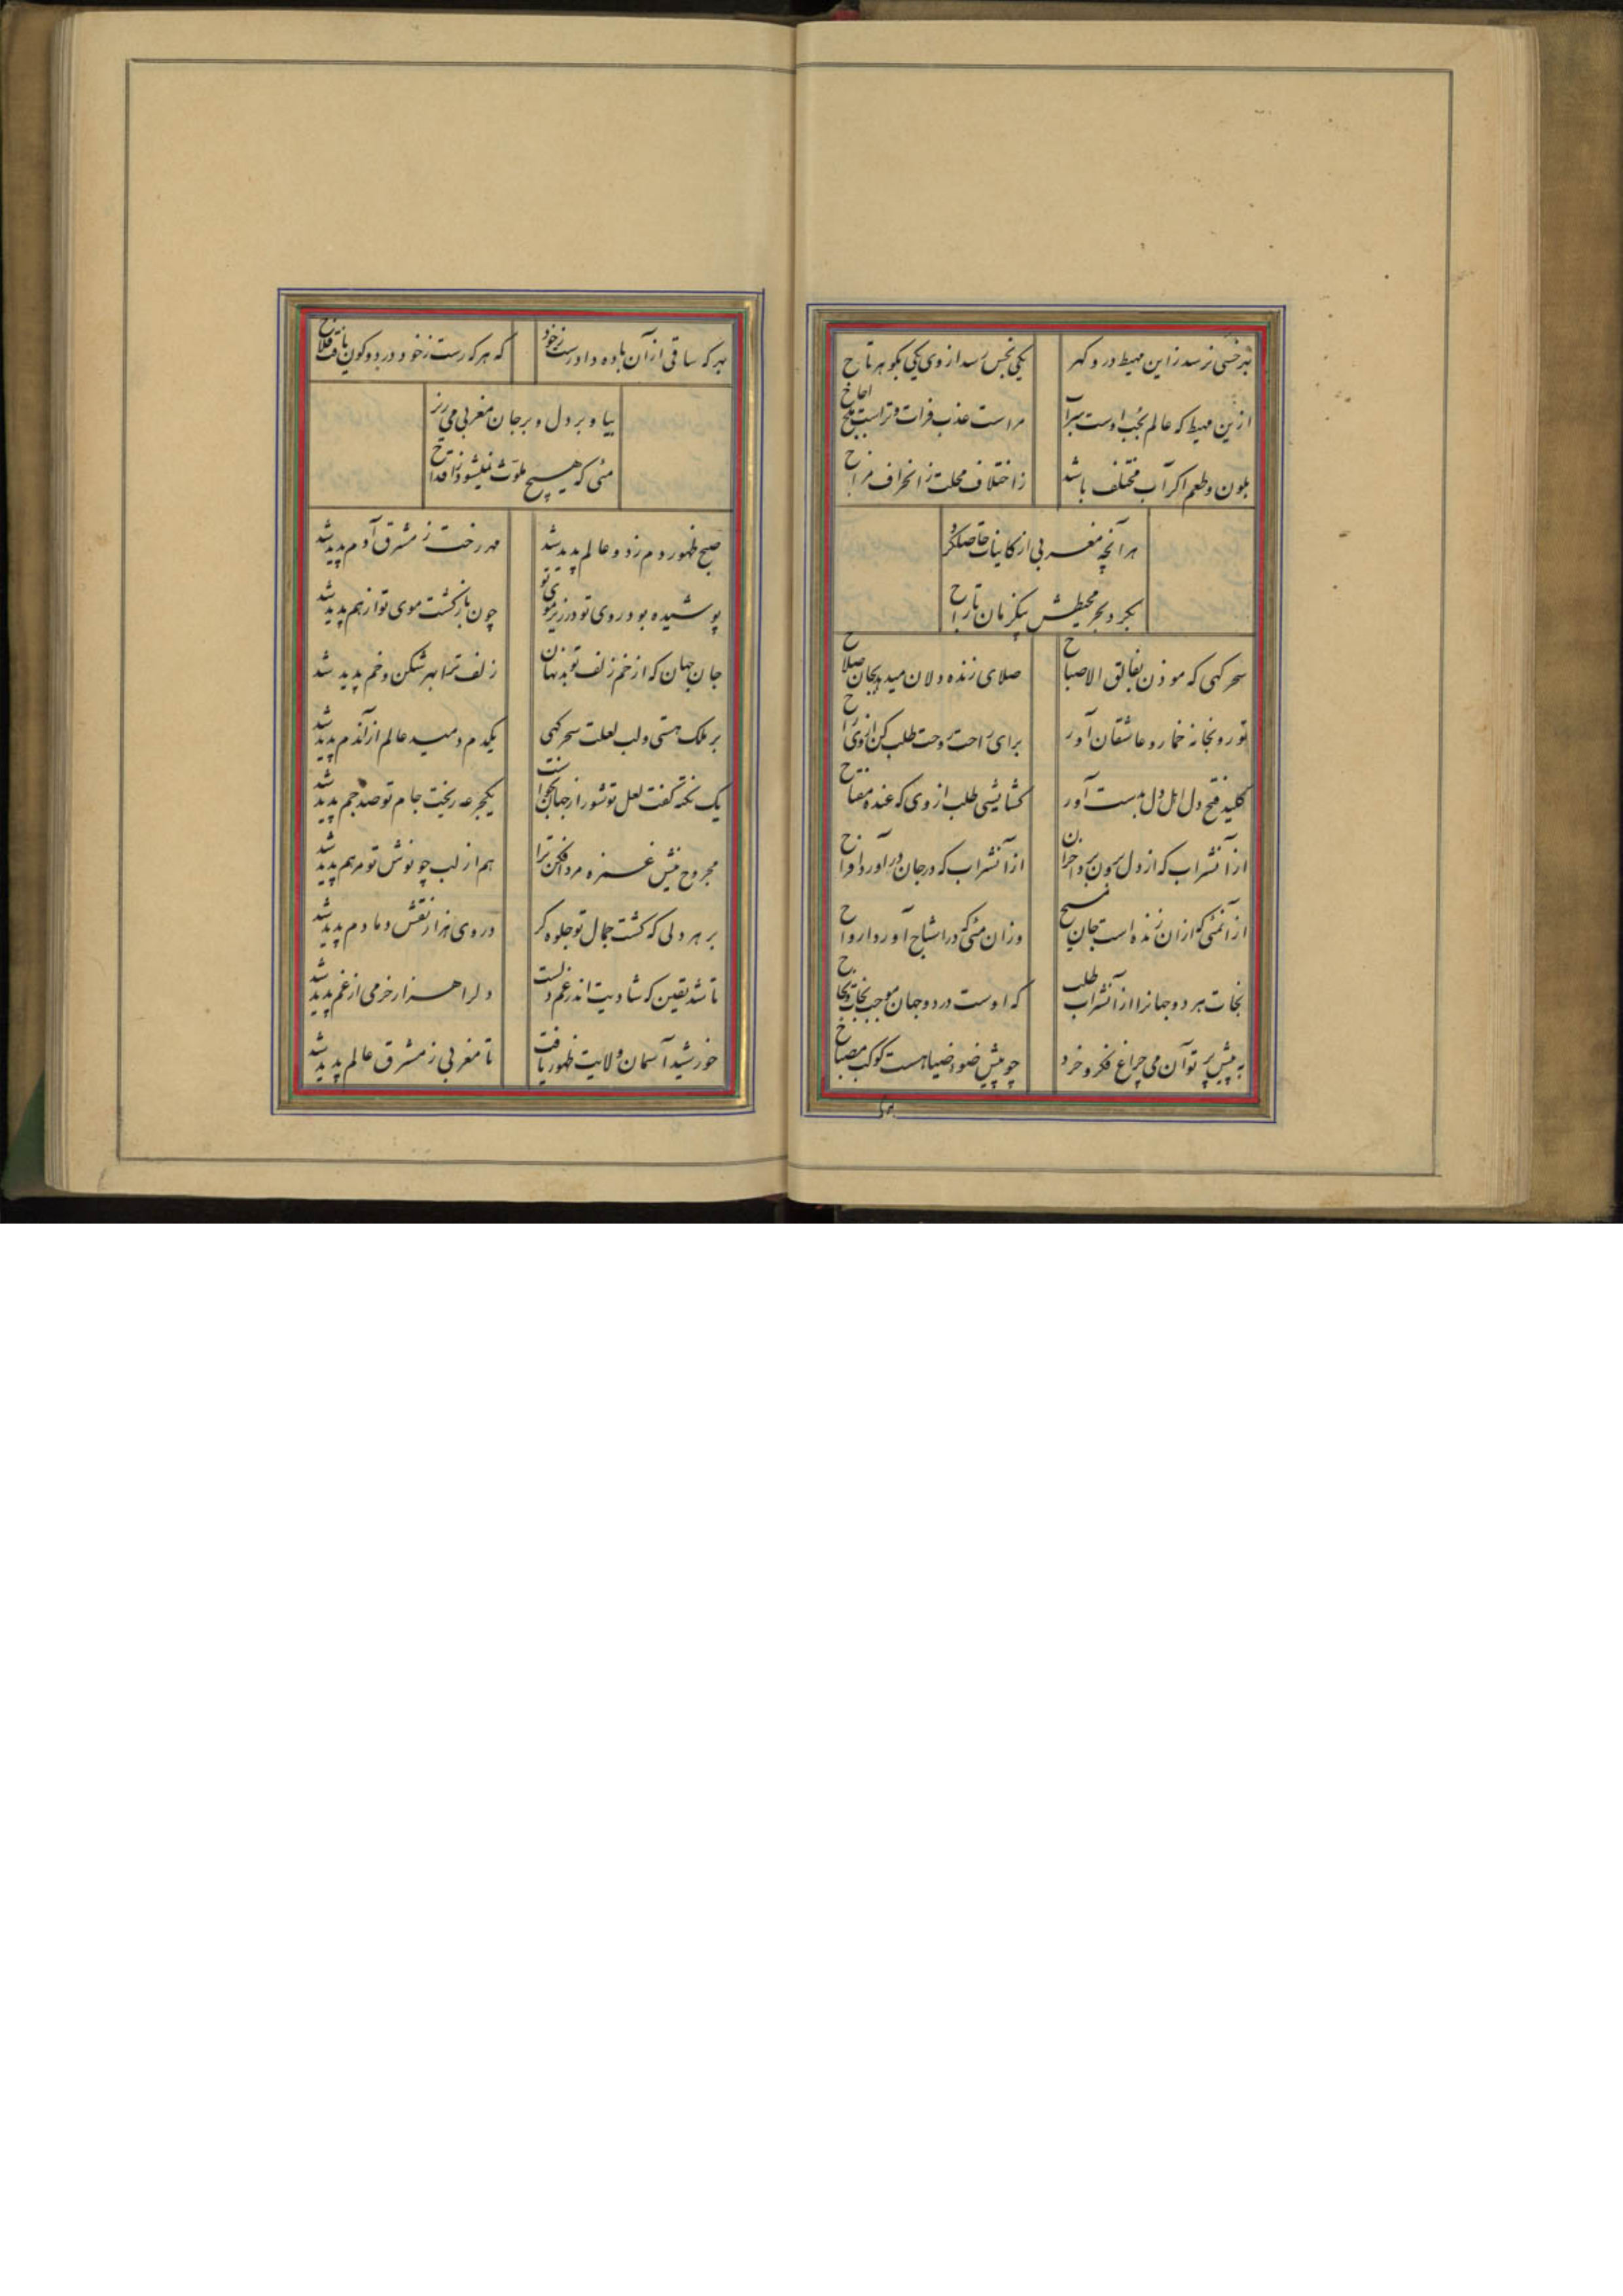 بهر خسی نرسد زاین محیط در و گهر
یکی بخس رسد از وی یکی بگوهر تاج
ازین محیط که عالم بجنب اوست سراب
مراست عذب فرات و تراست ملح اجاج
بلون و طعم اگر آب مختلف باشد
ز اختلاف محلست ز انحراف مزاج
هر آنچه مغربی از کاینات حاصل کرد
بکرد بحر محیطش بیکزمان تاراج
سحرگهی که موذن بفالق الاصباح
صلای زنده دلان میدهد بجان صلاح
تو رو بخانه خمار رو عاشقان آور
برای راحت روحت طلب کن از وی راح
کلید فتح دل اهل دل بدست آور
گشایشی طلب از وی که عنده مفتاح
از آنشراب که از دل برون برد احزان
از آنشراب که در جان در آورد افراح
از آنمئی که ازان زنده است جان مسیح
وزان مئی که در اشباح آورد ارواح
نجات هر دو جهانرا از آنشراب طلب
که اوست در دو جهان موجب نجات و نجاح
به پیش پرتو آن می چراغ فکر و خرد
چو پیش ضوء و ضیاهست کوکب مصباح
بهر که ساقی ازآن باده داد رست ز خود
که هر که رست ز خود در دو کون یافت فلاح
بیا و بر دل و بر جان مغربی می ریز
مئی که هیچ ملوث نمیشود ز اقداح
صبح ظهور دم زد و عالم پدید شد
مهر رخت ز مشرق آدم پدید شد
پوشیده بود روی تو در زیر موی تو
چون بازگشت موی تو از هم پدید شد
جان جهان که از خم زلف تو بد نهان
زلف ترا بهر شکن و خم پدید شد
بر ملک هستی ولب لعلت سحرگهی
یکدم دمید عالم از آندم پدید شد
یک نکته گفت لعل تو شور از جهان بخواست
یکجرعه ریخت جام تو صد جم پدید شد
مجروح نیش غمزه مرد افکن ترا
هم از لب چو نوش تو مرهم پدید شد
بر هر دلی که گشت جمال تو جلوه گر
در وی هزار نقش دمادم پدید شد
تا شد یقین که شادیت اندر غم دلست
دلرا هزار خرمی از غم پدید شد
خورشید آسمان ولایت ظهور یافت
تا مغربی ز مشرق عالم پدید شد